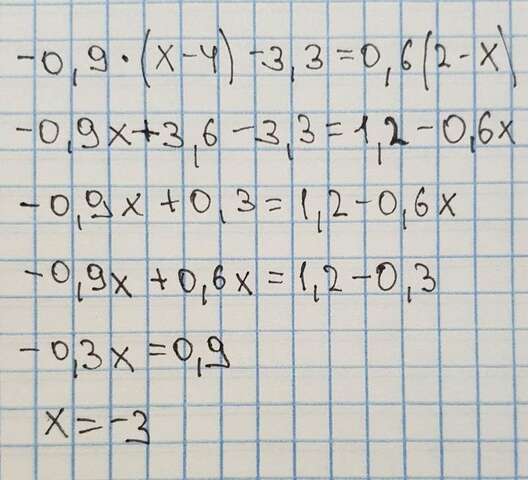 -0,9·(x-4)-3,3=0,6(2-x)
-0,9x+3,6-3,3=1,2-0,6x
-0,9x+0,3=1,2-0,6x
-0,9x+0,6x=1,2-0,3
-0,3x=0,9
x=-3